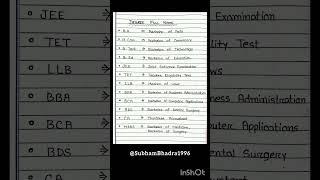 Degree Full Name
B.A → Bachelor of Arts
B.Com → Bachelor of Commerce
B.Tech → Bachelor of Technology
B.Ed → Bachelor of Education
JEE → Joint Entrance Examination
TET → Teacher Eligibility Test
LLB → of
BBA → Bachelor of Business Administration
BCA → Bachelor of Computer Applications
BDS → Bachelor of Dental Surgery
CA → Chartered Accountant
MBBS → Bachelor of Medicine,
Bachelor of Surgery
@SubhamBhadra1996
JEE
TET
LLB
BBA
BCA
BDS
CA
Examination
lity Test
ws
ness Administration
puter Applications
ental Surgery
InShOt